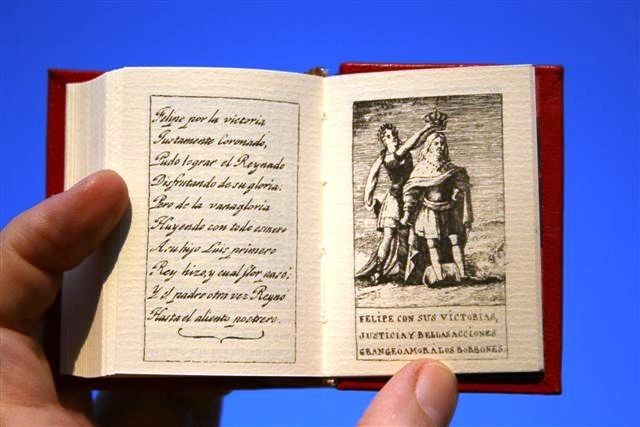 Felipe por la victoria
Justamente Coronado,
Pudo lograr el Reynado
Disfrutando de su gloria:
Pero de la vanagloria
Huyendo con todo esmero
A su hijo Luis primero
Rey hizo, y cual flor pasó;
Y el padre otra vez Reyno
Hasta el aliento postrero.
FELIPE CON SUS VICTORIAS,
JUSTICIA Y BELLAS ACCIONES
GRANGEO AMOR A LOS BORBONES.